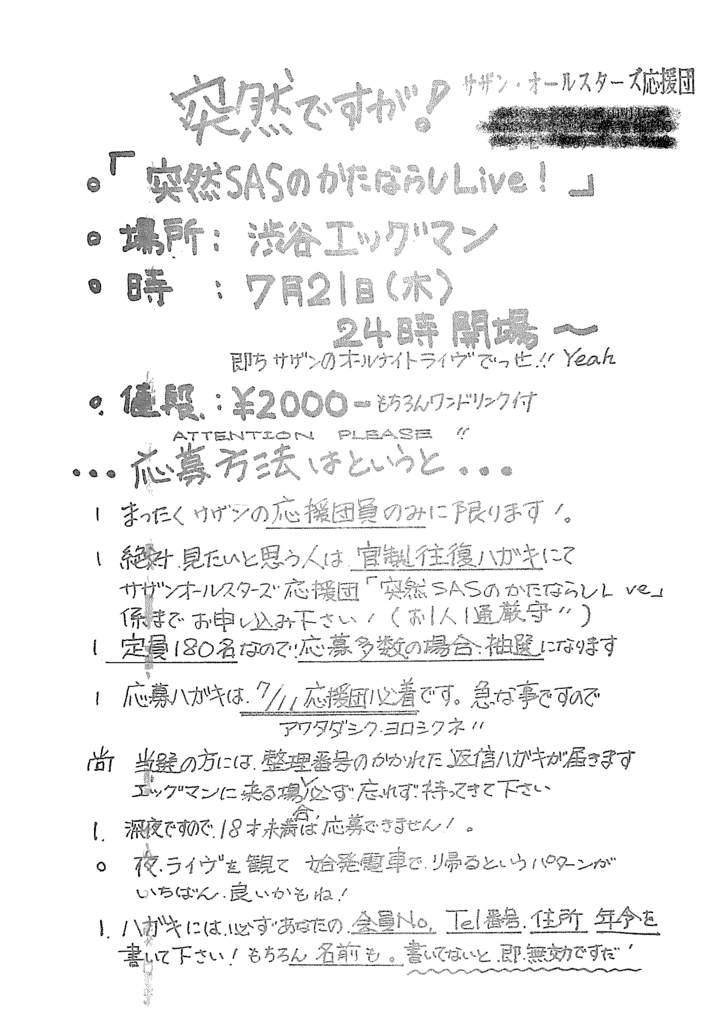 突然ですが!
サザン・オールスターズ応援団
。「突然SASのかたならしLive!」
。場所: 渋谷エッグマン
。時 : 7月21日(木)
24時開場〜
即ちサザンのオールナイトライヴでっせ!! Yeah
。値段: ¥2000-もちろんワンドリンク付
ATTENTION PLEASE !!
・・・応募方法はというと・・・
1 まったくサザンの応援団員のみに限ります!。
1 絶対見たいと思う人は、官製往復ハガキにて
サザンオールスターズ応援団「突然SASのかたならしL ve」
係までお申し込み下さい!(お1人1通厳守!!)
1 定員180名なので応募多数の場合、抽選になります
1 応募ハガキは、7/11応援団必着です。急な事ですので
アワタダシク・ヨロシクネ!!
尚 当選の方には、整理番号のかかれた返信ハガキが届きます
エッグマンに来る場合必ず忘れず持ってきて下さい
1. 深夜ですので、18才未満は応募できません!。
。夜、ライヴを観て始発電車で、帰るというパターンが
いちばん、良いかもね!
1. ハガキには、必ずあなたの、会員No, Tel番号、住所 年令を
書いて下さい!もちろん名前も。書いてないと、即、無効ですだ!